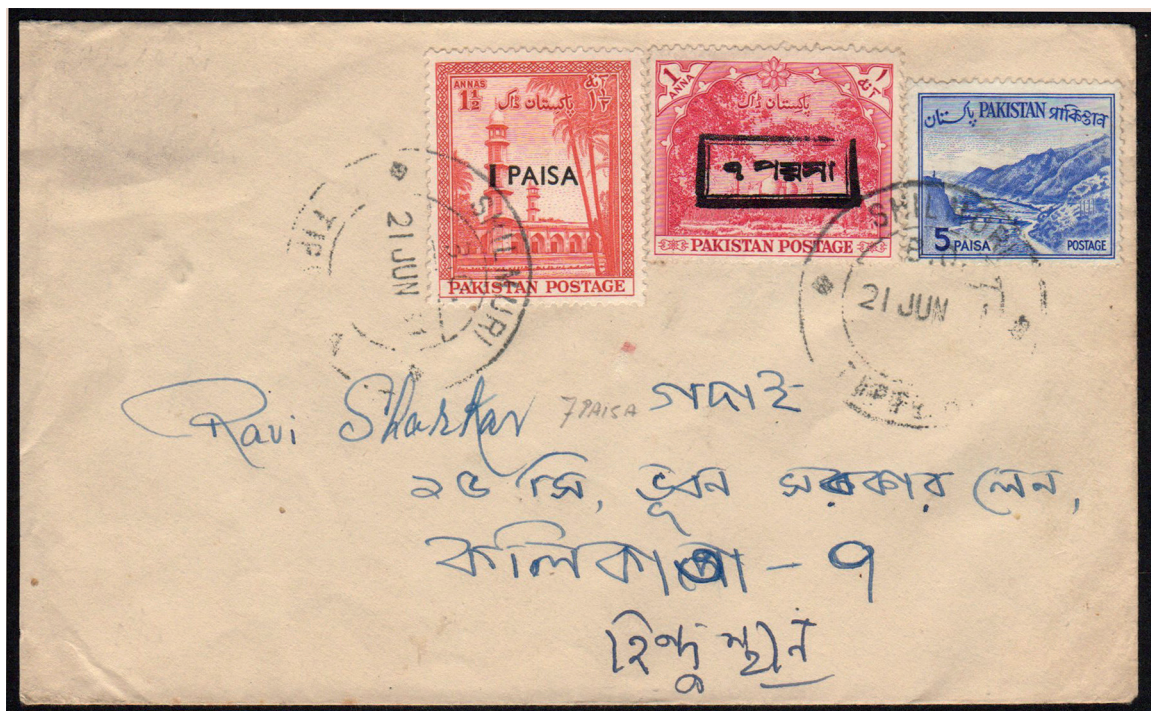 ANNAS
1½ آنہ ۱½
پاکستان ڈاک
1 PAISA
PAKISTAN POSTAGE
1 ANNA ۱ آنہ
پاکستان ڈاک
৭ পয়সা
PAKISTAN POSTAGE
پاکستان PAKISTAN পাকিস্তান
5 PAISA POSTAGE
SHILMURI
21 JUN
TIP
SHILMURI
21 JUN
Ravi Shankar 7 PAISA গদাই
২৫ সি, ভূবন সরকার লেন,
কলিকাতা - ৭
হিন্দুস্থান